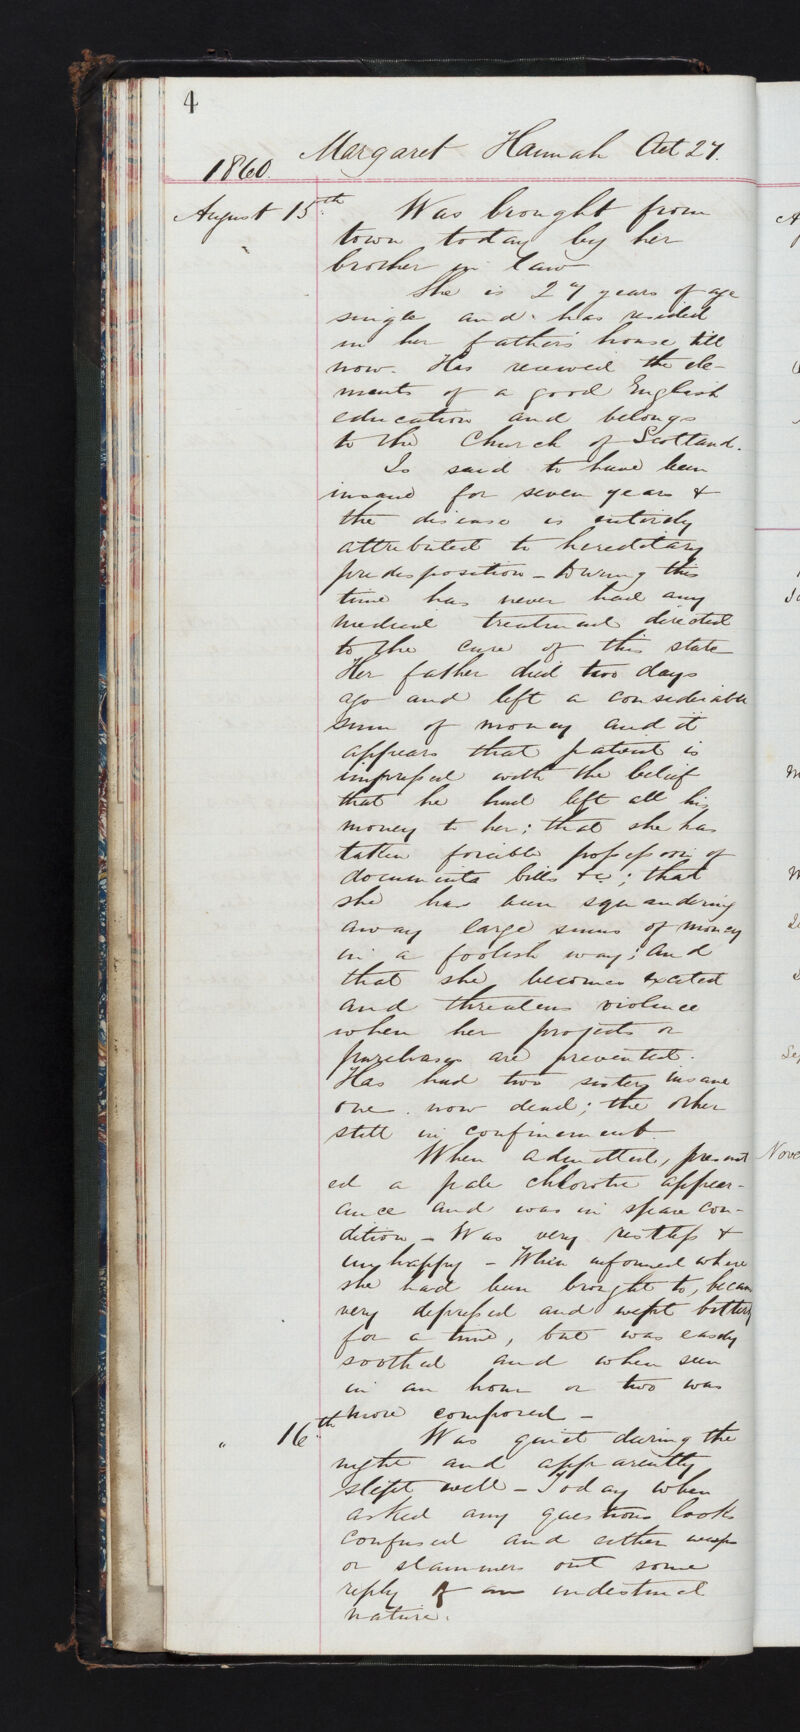 4
1860. Margaret Hannah Aet 27.
August 15th. Was brought from
town today by her
brother in law
She is 27 years of age
single and has resided
in her fathers house till
now. Has received the ele-
ments of a good English
education and belongs
to the Church of Scotland.
Is said to have been
insane for seven years &
the disease is entirely
attributed to hereditary
predisposition - During this
time has never had any
medical treatment directed
to the cure of this state
Her father died two days
ago and left a considerable
sum of money and it
appears that patient is
impressed with the belief
that he had left all his
money to her; that she has
taken forcible possession of
documents bills &c; that
she has been squandering
away large sums of money
in a foolish way; and
that she becomes excited
and threatens violence
when her projects or
purchases are prevented.
Has had two sisters insane
one now dead; the other
still in confinement.
When admitted, present
ed a pale chlorotic appear-
ance and was in spare con-
dition - Was very restless &
unhappy - When informed where
she had been brought to, became
very depressed and wept bitterly
for a time, but was easily
soothed and when seen
in an hour or two was
more composed -
" 16th. Was quiet during the
night and apparently
slept well - Today when
asked any questions looks
confused and either weeps
or stammers out some
reply of an indistinct
nature.
Nove